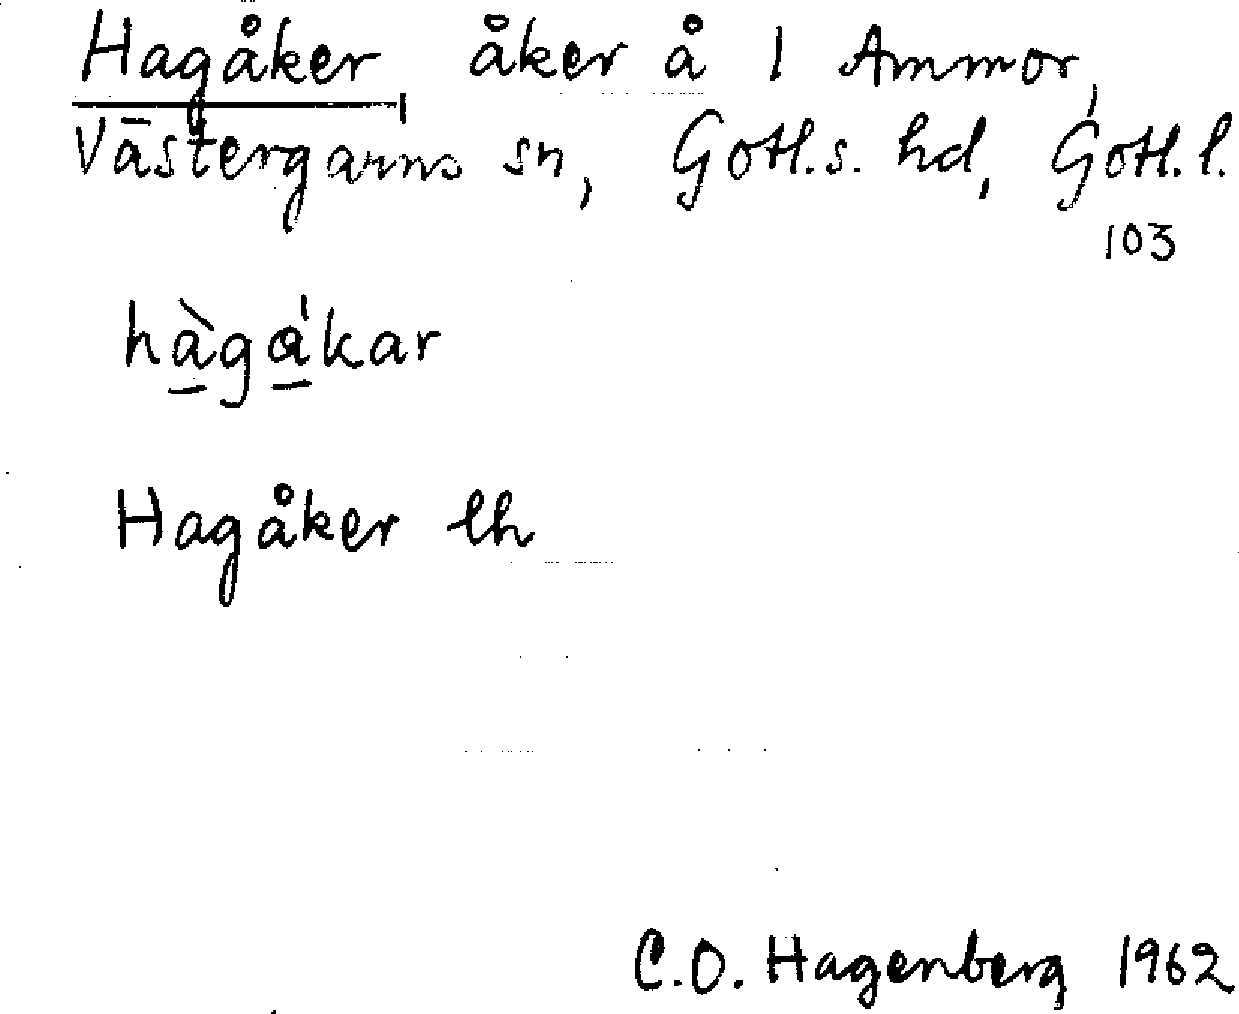 Hagåker åker å 1 Ammor,
Västergarns sn, Gotl.s. hd, Gotl.l.
103
hàgákar
Hagåker lh
C.O. Hagenberg 1962